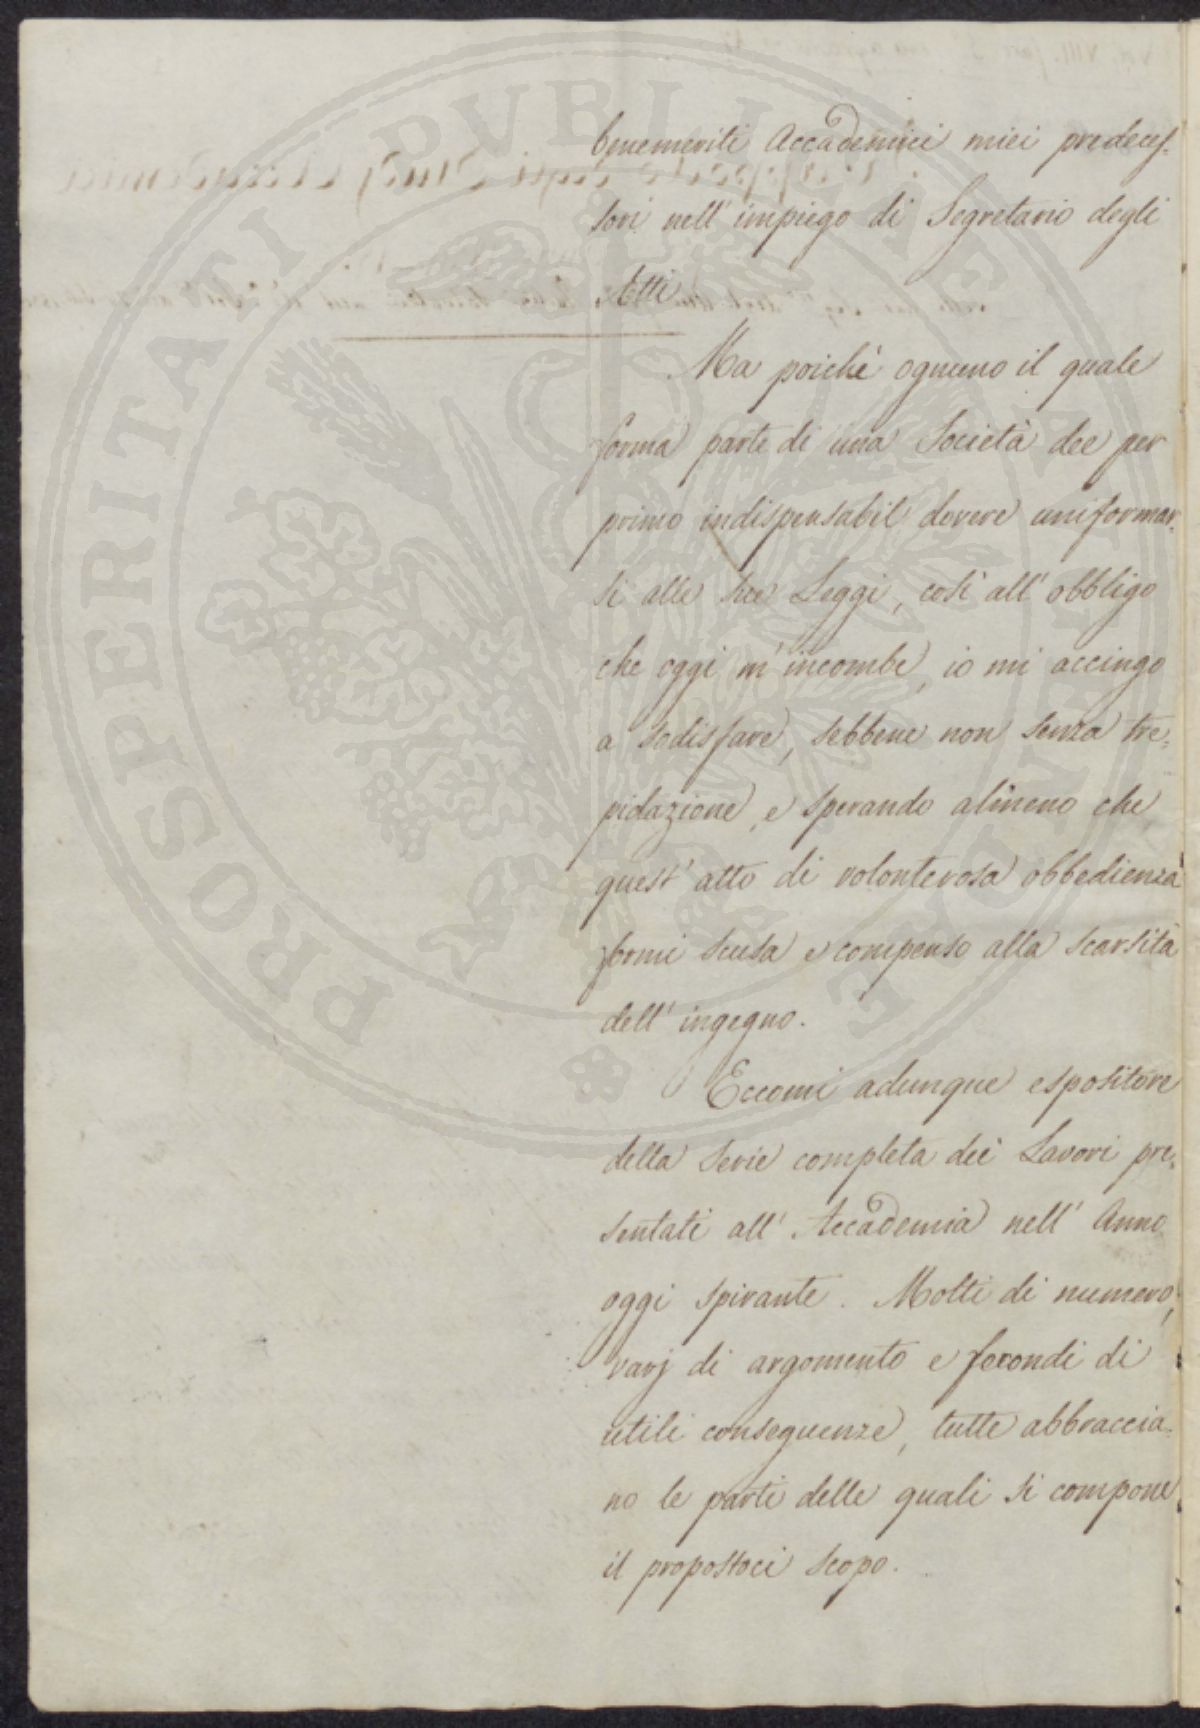 benemeriti Accademici miei predeces-
sori nell' impiego di Segretario degli
Atti.
Ma poichè ognuno il quale
forma parte di una Società dee per
primo indispensabil dovere uniformar-
si alle sue Leggi, così all' obbligo
che oggi m' incombe, io mi accingo
a sodisfare, sebbene non senza tre-
pidazione, e sperando almeno che
quest' atto di volonterosa obbedienza
formi scusa e compenso alla scarsità
dell' ingegno.
Eccomi adunque espositore
della serie completa dei Lavori pre-
sentati all' Accademia nell' Anno
oggi spirante. Molti di numero,
varj di argomento e fecondi di
utili conseguenze, tutte abbraccia-
no le parti delle quali si compone
il propostoci scopo.
PROSPERITATI PVBLICAE AVGENDAE